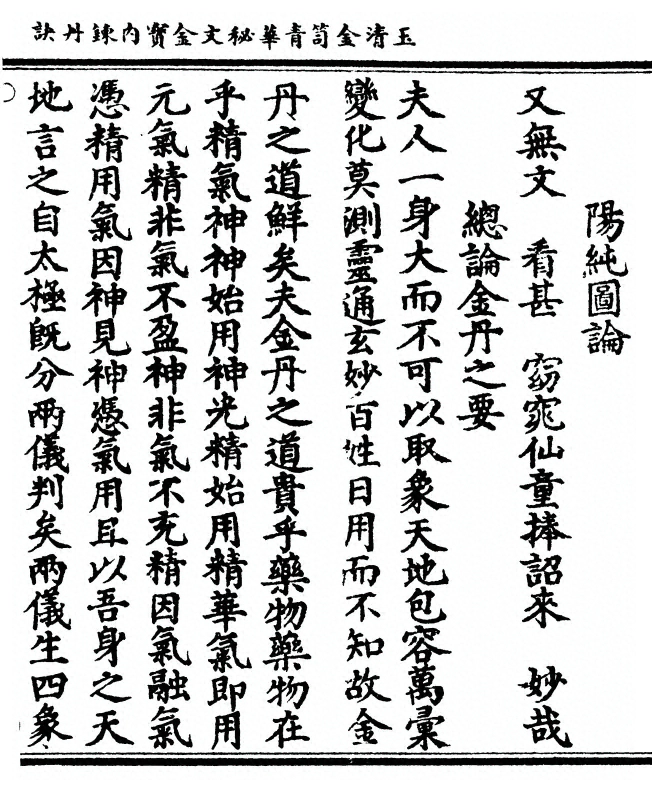 玉清金笥青華秘文金寳内鍊丹訣
陽純圖論
又無文　看甚　窈窕仙童捧詔來　妙哉
總論金丹之要
夫人一身大而不可以取象天地包容萬彙
變化莫測靈通玄妙百姓日用而不知故金
丹之道鮮矣夫金丹之道貴乎藥物藥物在
乎精氣神神始用神光精始用精華氣即用
元氣精非氣不盈神非氣不充精因氣融氣
憑精用氣因神見神憑氣用且以吾身之天
地言之自太極旣分兩儀判矣兩儀生四象